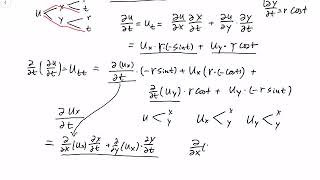 u x r t
y r t
∂u/∂t = u_t = ∂u/∂x ∂x/∂t + ∂u/∂y ∂y/∂t
∂y/∂t = r cost
= u_x · r(-sint) + u_y · r cost
∂/∂t (∂u/∂t) = u_tt = ∂(u_x)/∂t · (-r sint) + u_x (r(-cost)) +
∂/∂t (u_y) · r cost + u_y · (-r sint)
∂u_x/∂t
u x y u_x x y u_y x y
= ∂/∂x (u_x) ∂x/∂t + ∂/∂y (u_x) · ∂y/∂t
∂/∂x (